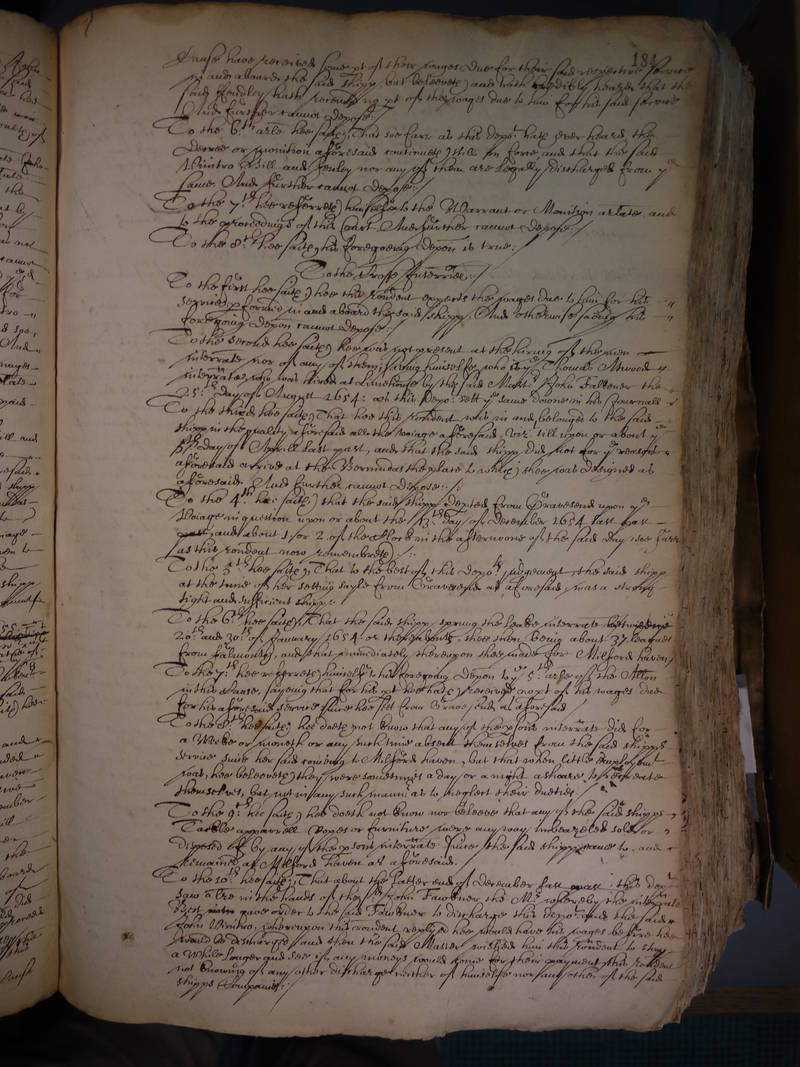 184
Cause have received some pt of their wages due for their said respective service
in and aboard the said shipp, but beleeveth and hath credibly heard that the
said Hendley hath received no pt of the wages due to him for his said service
And further cannot depose:/
To the 6th arle hee saith, That soe farr as this depot hath ever heard, the
decree or monition aforesaid continueth still in force and that the said
Wintro Hill and Henley nor any of them are legally discharged from ye
same. And further cannot depose:/
To the 7th hee referreth himselfe to the Warrant or Monition arlate and
to the proceedings of this Court. And further cannot depose:/
To the 8th hee saith, his foregoeing depon is true:/
To the Crosse Interries:/
To the first hee saith, hee this rondent expects the wages due to him for his
services pformed in and aboard the said shipp, And otherwise saving his
foregoing depon cannot depose:/
To the second hee saith, hee was not present at the hireing of the men
interrate nor of any of them saving himselfe, who wth Thomas Atwood
interrate, who was hired at Limehouse by the said Mastr John Falkner the
25th day of August 1654: as this depot sett ye same downe in his Journall
To the third hee saith, That hee this rondent was in and belonged to the said
shipp in the quality aforesaid all the voiage aforesaid, viz. till upon or about ye
day of Aprill last past, and that the said shipp did not for ye reasons
aforesaid arrive at the Bermudas the place to which shee was designed as
aforesaid And further cannot depose:/
To the 4th hee saith, that the said shipp depted from Gravesend upon ye
Voiage in question upon or about the 13th day of December 1654 last past
and about 1 or 2 of the clock in the afternoone of the said day soe farre
as this rondent now remembreth:/
To the 5th hee saith, That to the best of this depots judgement the said shipp
at the time of her setting sayle from Gravesend as aforesaid, was a strong
tight and sufficient shipp:
To the 6th hee saith, That the said shipp sprung the leake interrate betweene ye
20th and 30th of January 1654 or thereabouts, shee then being about 37 leagues
from Falmouth, and that immediately thereupon shee made for Milford haven,
To the 7th hee referreth himselfe to his foregoing depon to ye 5th arle of the Allon
in this Cause, sayeing that for his pt hee hath received no pt of his wages due
for his aforesaid service since hee sett from Gravesend as aforesaid
To the 8th hee saith, he doeth not know that any of the psons interrate did for
a Weeke or moneth or any such time absent themselves from the said shipps
service since her said coming to Milford haven, but that when little employment
was, hee beleeveth they were sometimes a day or a night ashoare to recreate
themselves, but not in any such manner as to neglect their duties.
To the 9th hee saith, hee doeth not know nor beleeve that any of the said shipps
Tackle apparrell Ropes or furniture were any way imbeazeled sold or
disposed of by any of the psons interrate since the said shipp came to, and
remained at Milford haven as aforesaid.
To the 10th hee saith, That about the latter end of December last past: this depot
saw a lre in the hands of the sd John Faulkner the Mr whereby the interrate
gave order to the said Faulkner to discharge this depot and the said
John Wintro, whereupon this rondent replyed hee would have his wages before hee
would be discharged, and then the said Master wished him this rondent to stay
a while longer and see if any moneys would come for their payment, this rondent
not knowing of any other discharge neither of himselfe nor any other of the said
shipps Companie:/